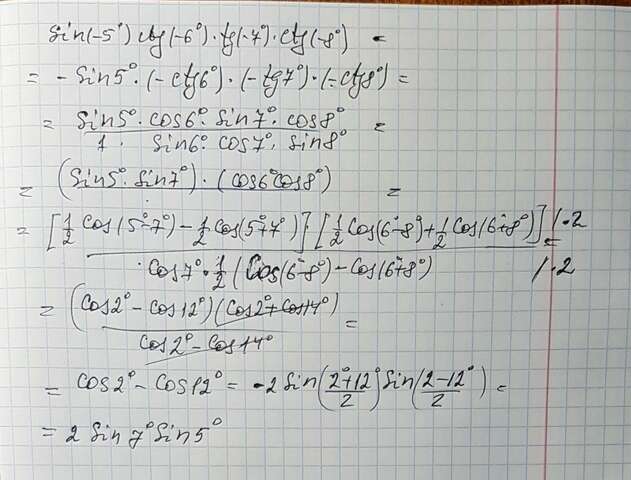 Sin(-5°) ctg(-6°)·tg(-7°)·ctg(-8°) =
= -Sin5°·(-ctg6°)·(-tg7°)·(-ctg8°) =
= Sin5°·cos6°·Sin7°·cos8° =
1 · Sin6°·cos7°·sin8°
= (Sin5°·Sin7°)·(cos6°cos8°) =
= [1/2 cos(5°-7°) - 1/2 cos(5°+7°)]·[1/2 cos(6°-8°) + 1/2 cos(6°+8°)] |·2 =
cos7°·1/2 (cos(6°-8°) - cos(6°+8°) |·2
= (cos2° - cos12°)(cos2° + cos14°) =
cos2° - cos14°
= cos2° - cos12° = -2 Sin(2°+12°/2) Sin(2-12°/2) =
= 2 Sin7° Sin5°